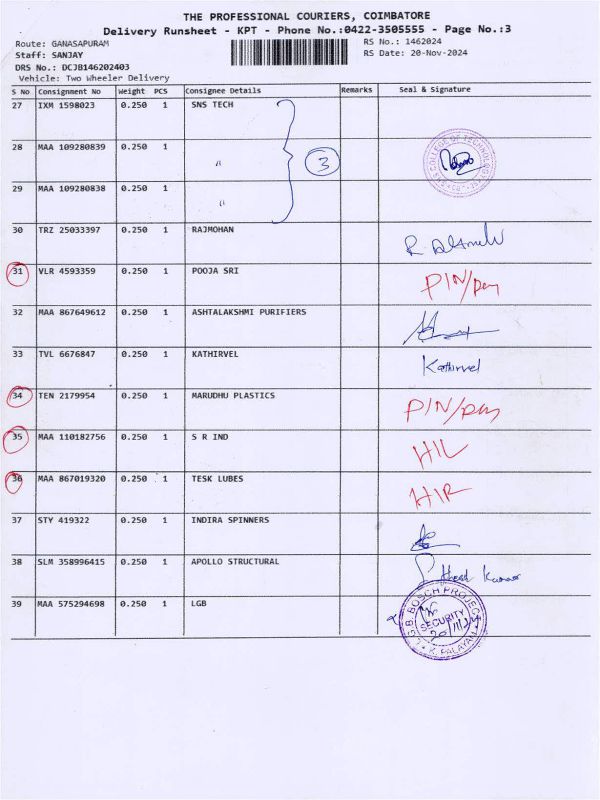 THE PROFESSIONAL COURIERS, COIMBATORE
Delivery Runsheet - KPT - Phone No.:0422-3505555 - Page No.:3
Route: GANASAPURAM
RS No.: 1462024
Staff: SANJAY
RS Date: 20-Nov-2024
DRS No.: DCJB146202403
Vehicle: Two Wheeler Delivery
S No Consignment No Weight PCS Consignee Details Remarks Seal & Signature
27 IXM 1598023 0.250 1 SNS TECH
28 MAA 109280839 0.250 1 " 3
COLLEGE OF TECHNOLOGY
29 MAA 109280838 0.250 1 "
30 TRZ 25033397 0.250 1 RAJMOHAN
31 VLR 4593359 0.250 1 POOJA SRI PIN/
32 MAA 867649612 0.250 1 ASHTALAKSHMI PURIFIERS
33 TVL 6676847 0.250 1 KATHIRVEL Kathirvel
34 TEN 2179954 0.250 1 MARUDHU PLASTICS PIN/
35 MAA 110182756 0.250 1 S R IND
36 MAA 867019320 0.250 1 TESK LUBES
37 STY 419322 0.250 1 INDIRA SPINNERS
38 SLM 358996415 0.250 1 APOLLO STRUCTURAL
39 MAA 575294698 0.250 1 LGB
BOSCH PROJECT
SECURITY
20/11/24
K. PALAYAM